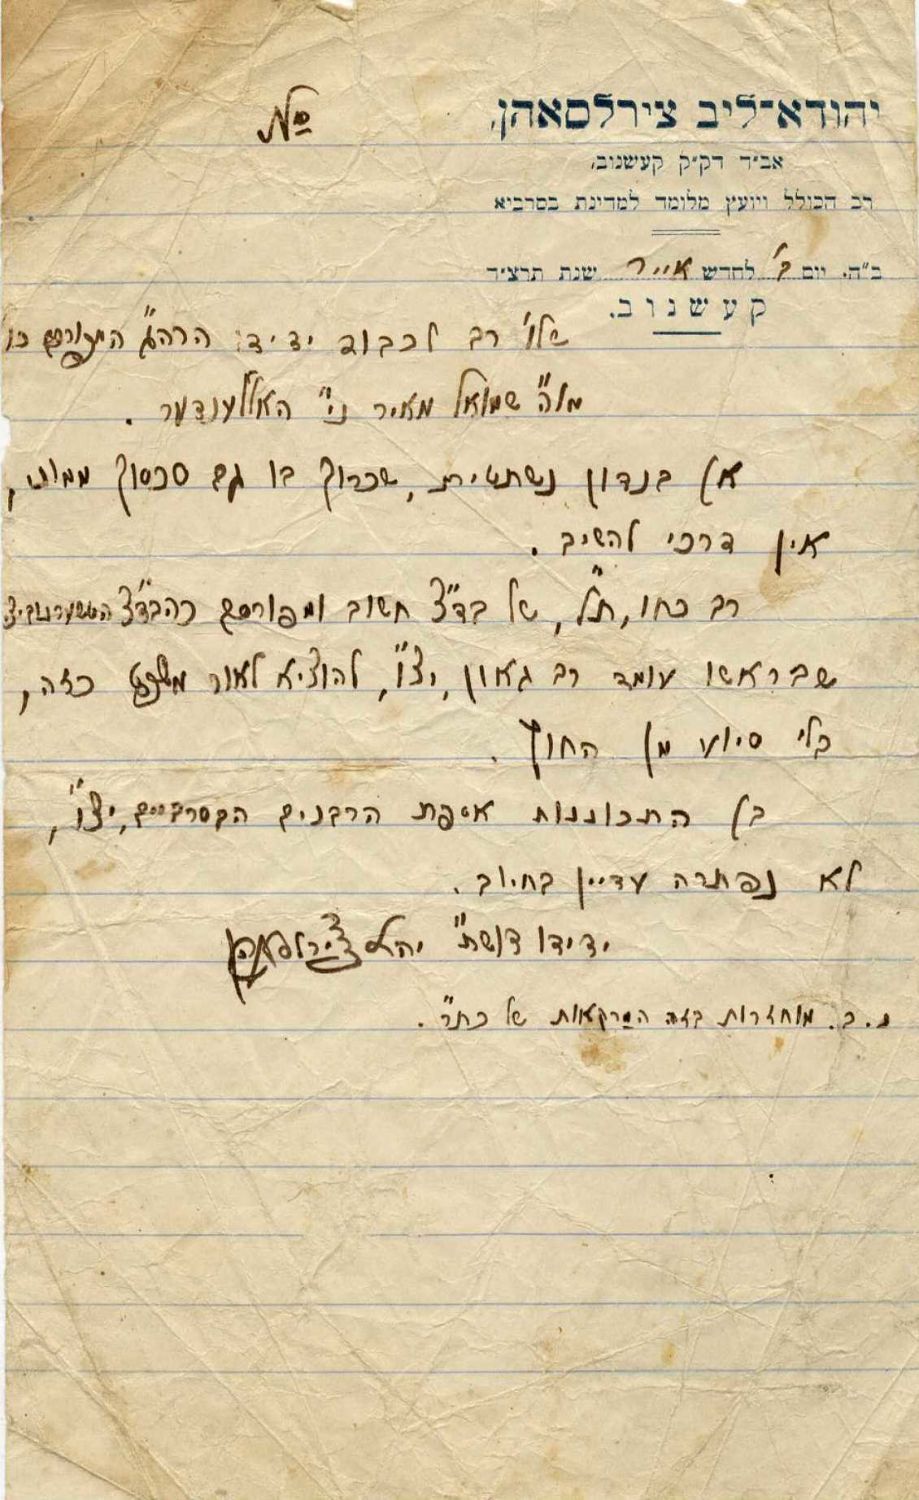 יהודא־ליב צירלסאהן,
אב״ד דק״ק קעשנוב,
רב הכולל ויועץ מלומד למדינת בסרביא
ב״ה. יום ב׳ לחדש אייר שנת תרצ״ד
קעשנוב.
שלו׳ רב לכבוד ידידי הרה״ג המפורסם כו׳
מוה״ שמואל מאיר ני״ האללענדער.
אל בנדון נשתטית, שכרוך בו גם סכסוך ממוני,
אין דרכי להשיב.
רב כחו, ת״ל, של בד״צ חשוב ומפורסם כהבד״צ הטשערנוביצי
שבראשו עומד רב גאון, יצ״ו, להוציא לאור משפט כזה,
בלי סיוע מן החוץ.
בל התכוננות אספת הרבנים הבסרביים, יצ״ו,
לא נפתרה עדיין בחיוב.
ידידו דושת״ יהל צירלסאהן
נ.ב. מוחזרות בזה המרקאות של כת״ר.